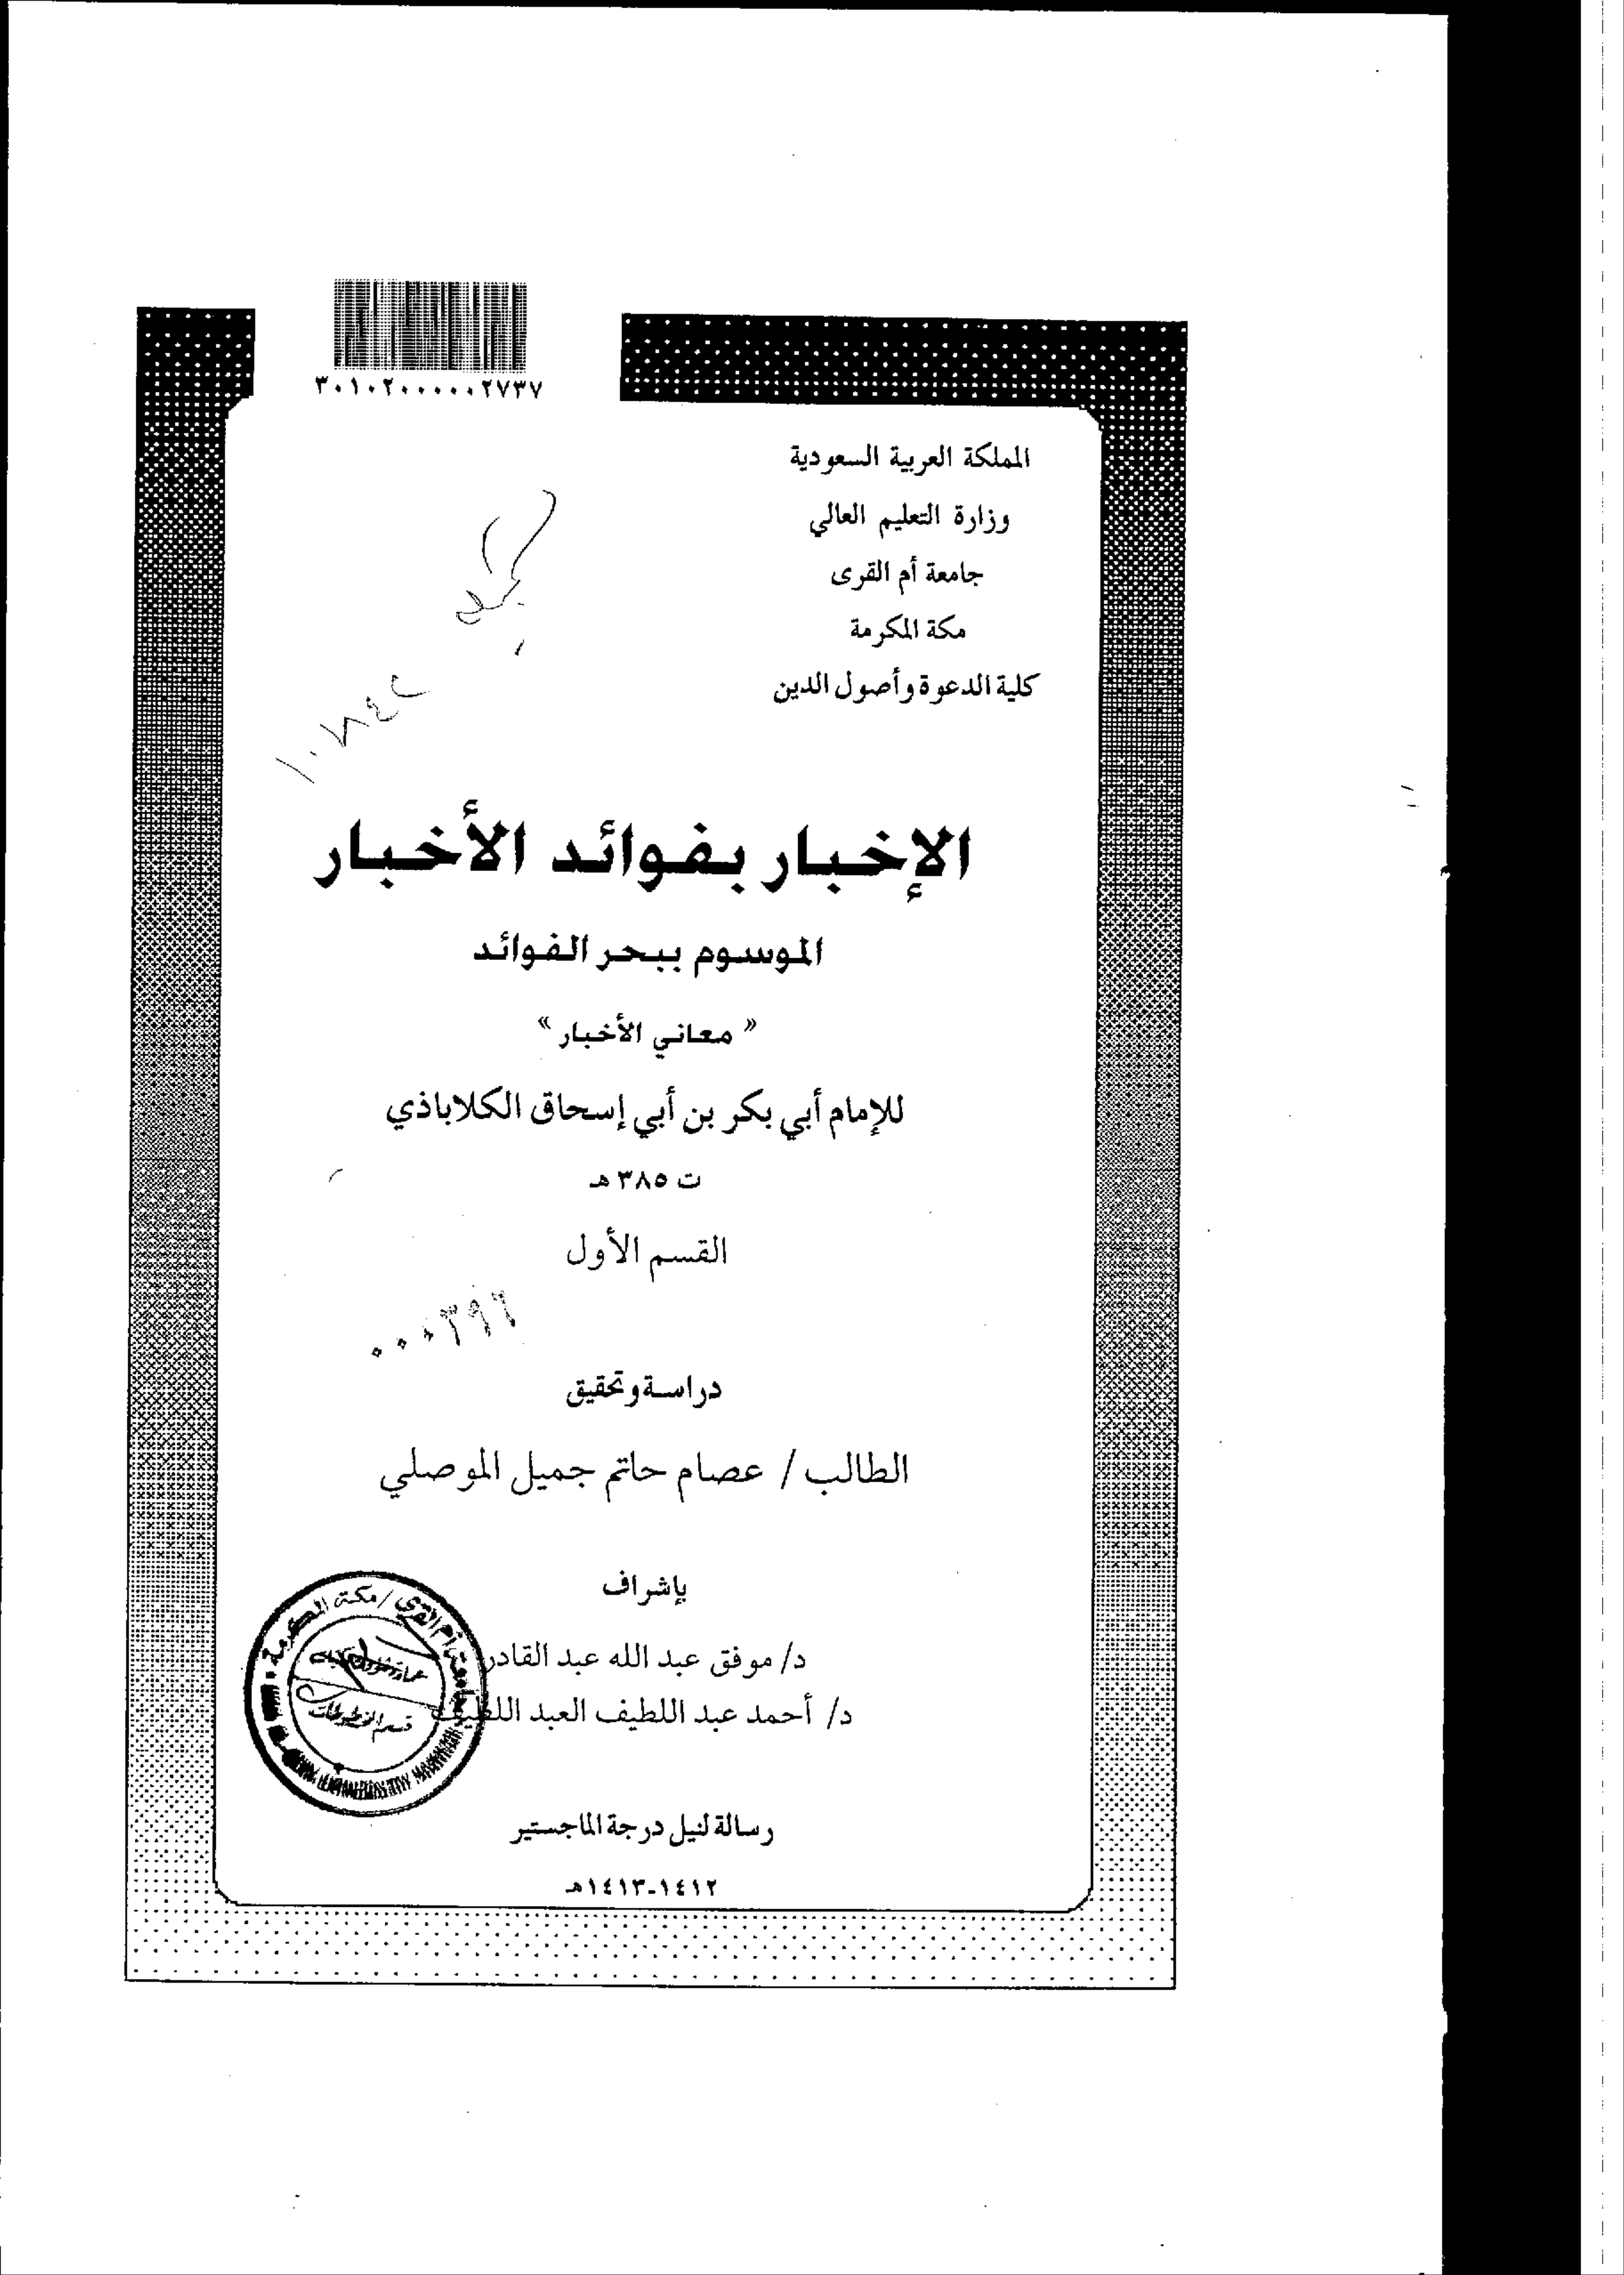 ٣٠١٠٢٠٠٠٠٠٢٧٣٧
المملكة العربية السعودية
وزارة التعليم العالي
جامعة أم القرى
مكة المكرمة
كلية الدعوة وأصول الدين
١٠٨٤٢
الإخبار بفوائد الأخبار
الموسوم ببحر الفوائد
« معاني الأخبار »
للإمام أبي بكر بن أبي إسحاق الكلاباذي
ت ٣٨٥ هـ
القسم الأول
٠٠٠٣٩٦
دراسة وتحقيق
الطالب / عصام حاتم جميل الموصلي
بإشراف
د/ موفق عبد الله عبد القادر
د/ أحمد عبد اللطيف العبد اللطيف
جامعة أم القرى / مكة المكرمة
قسم المخطوطات
رسالة لنيل درجة الماجستير
١٤١٢-١٤١٣هـ